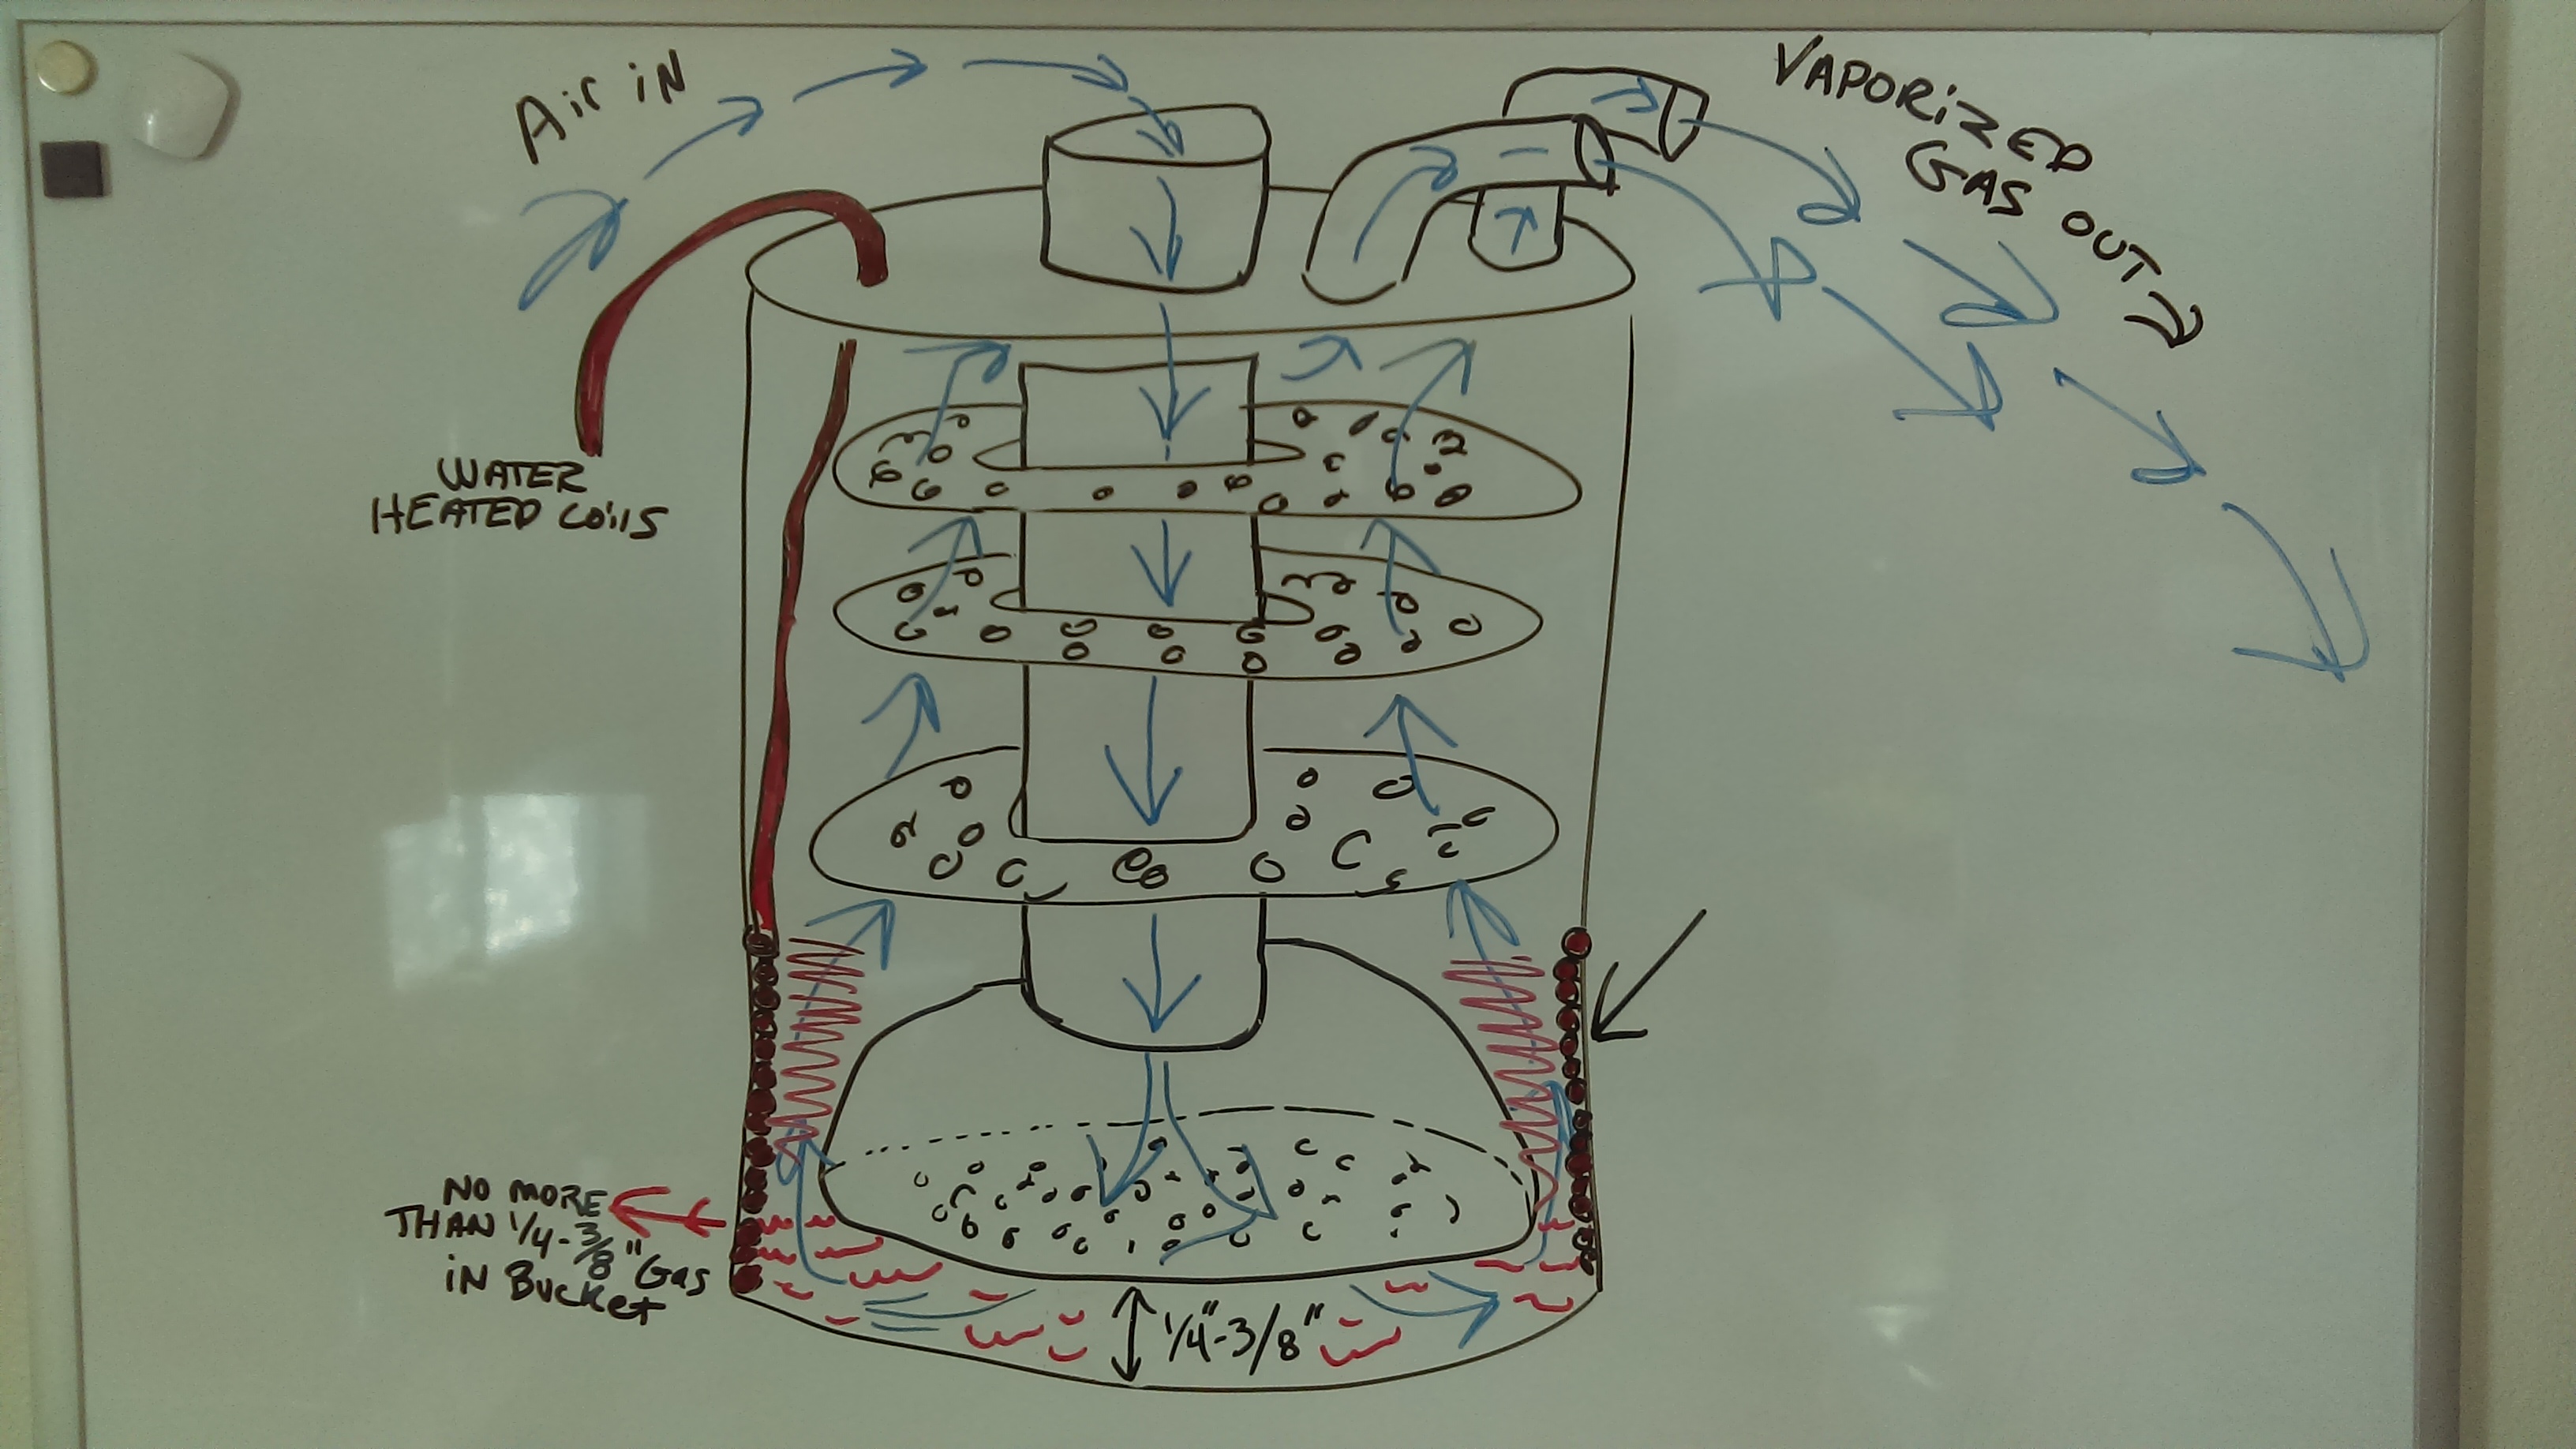 Air iN
VAPORiZED
GAS OUT
WATER
HEATED Coils
NO MORE
THAN 1/4-3/8" Gas
iN Bucket
1/4"-3/8"